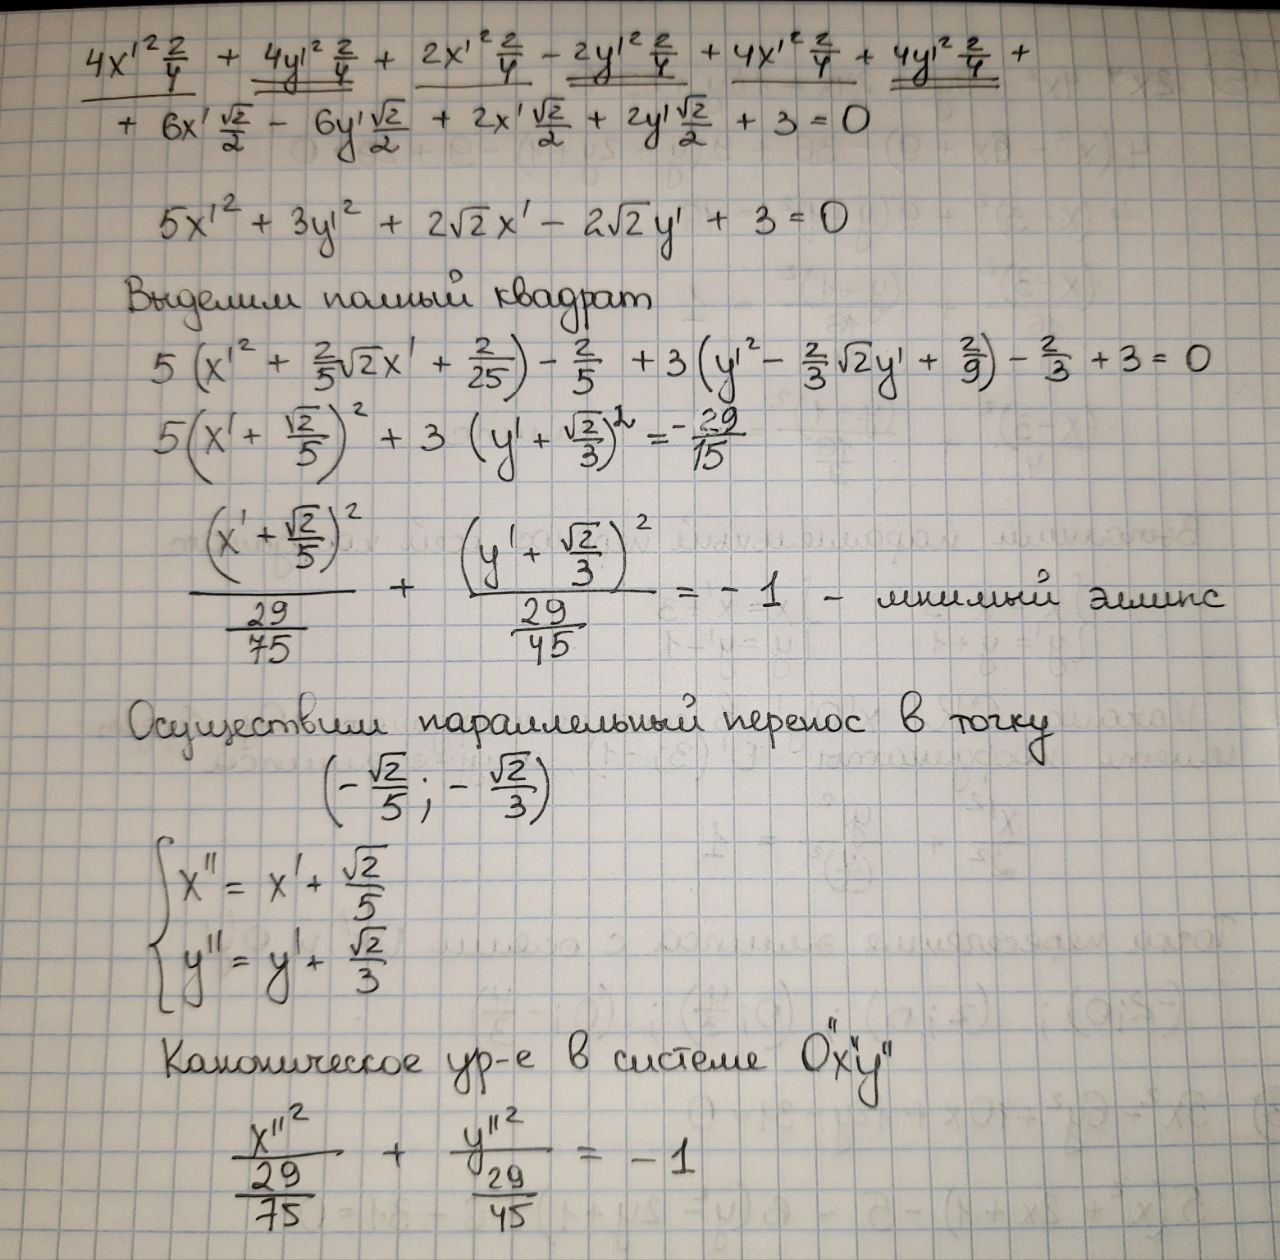 4x'² 2/4 + 4y'² 2/4 + 2x'² 2/4 - 2y'² 2/4 + 4x'² 2/4 + 4y'² 2/4 +
+ 6x' √2/2 - 6y' √2/2 + 2x' √2/2 + 2y' √2/2 + 3 = 0
5x'² + 3y'² + 2√2x' - 2√2y' + 3 = 0
Выделим полный квадрат
5(x'² + 2/5√2x' + 2/25) - 2/5 + 3(y'² - 2/3√2y' + 2/9) - 2/3 + 3 = 0
5(x' + √2/5)² + 3(y' + √2/3)² = -29/15
(x' + √2/5)²/(29/75) + (y' + √2/3)²/(29/45) = -1 - мнимый эллипс
Осуществим параллельный перенос в точку
(-√2/5; -√2/3)
{x'' = x' + √2/5
y'' = y' + √2/3
Каноническое ур-е в системе O''x''y''
x''²/(29/75) + y''²/(29/45) = -1